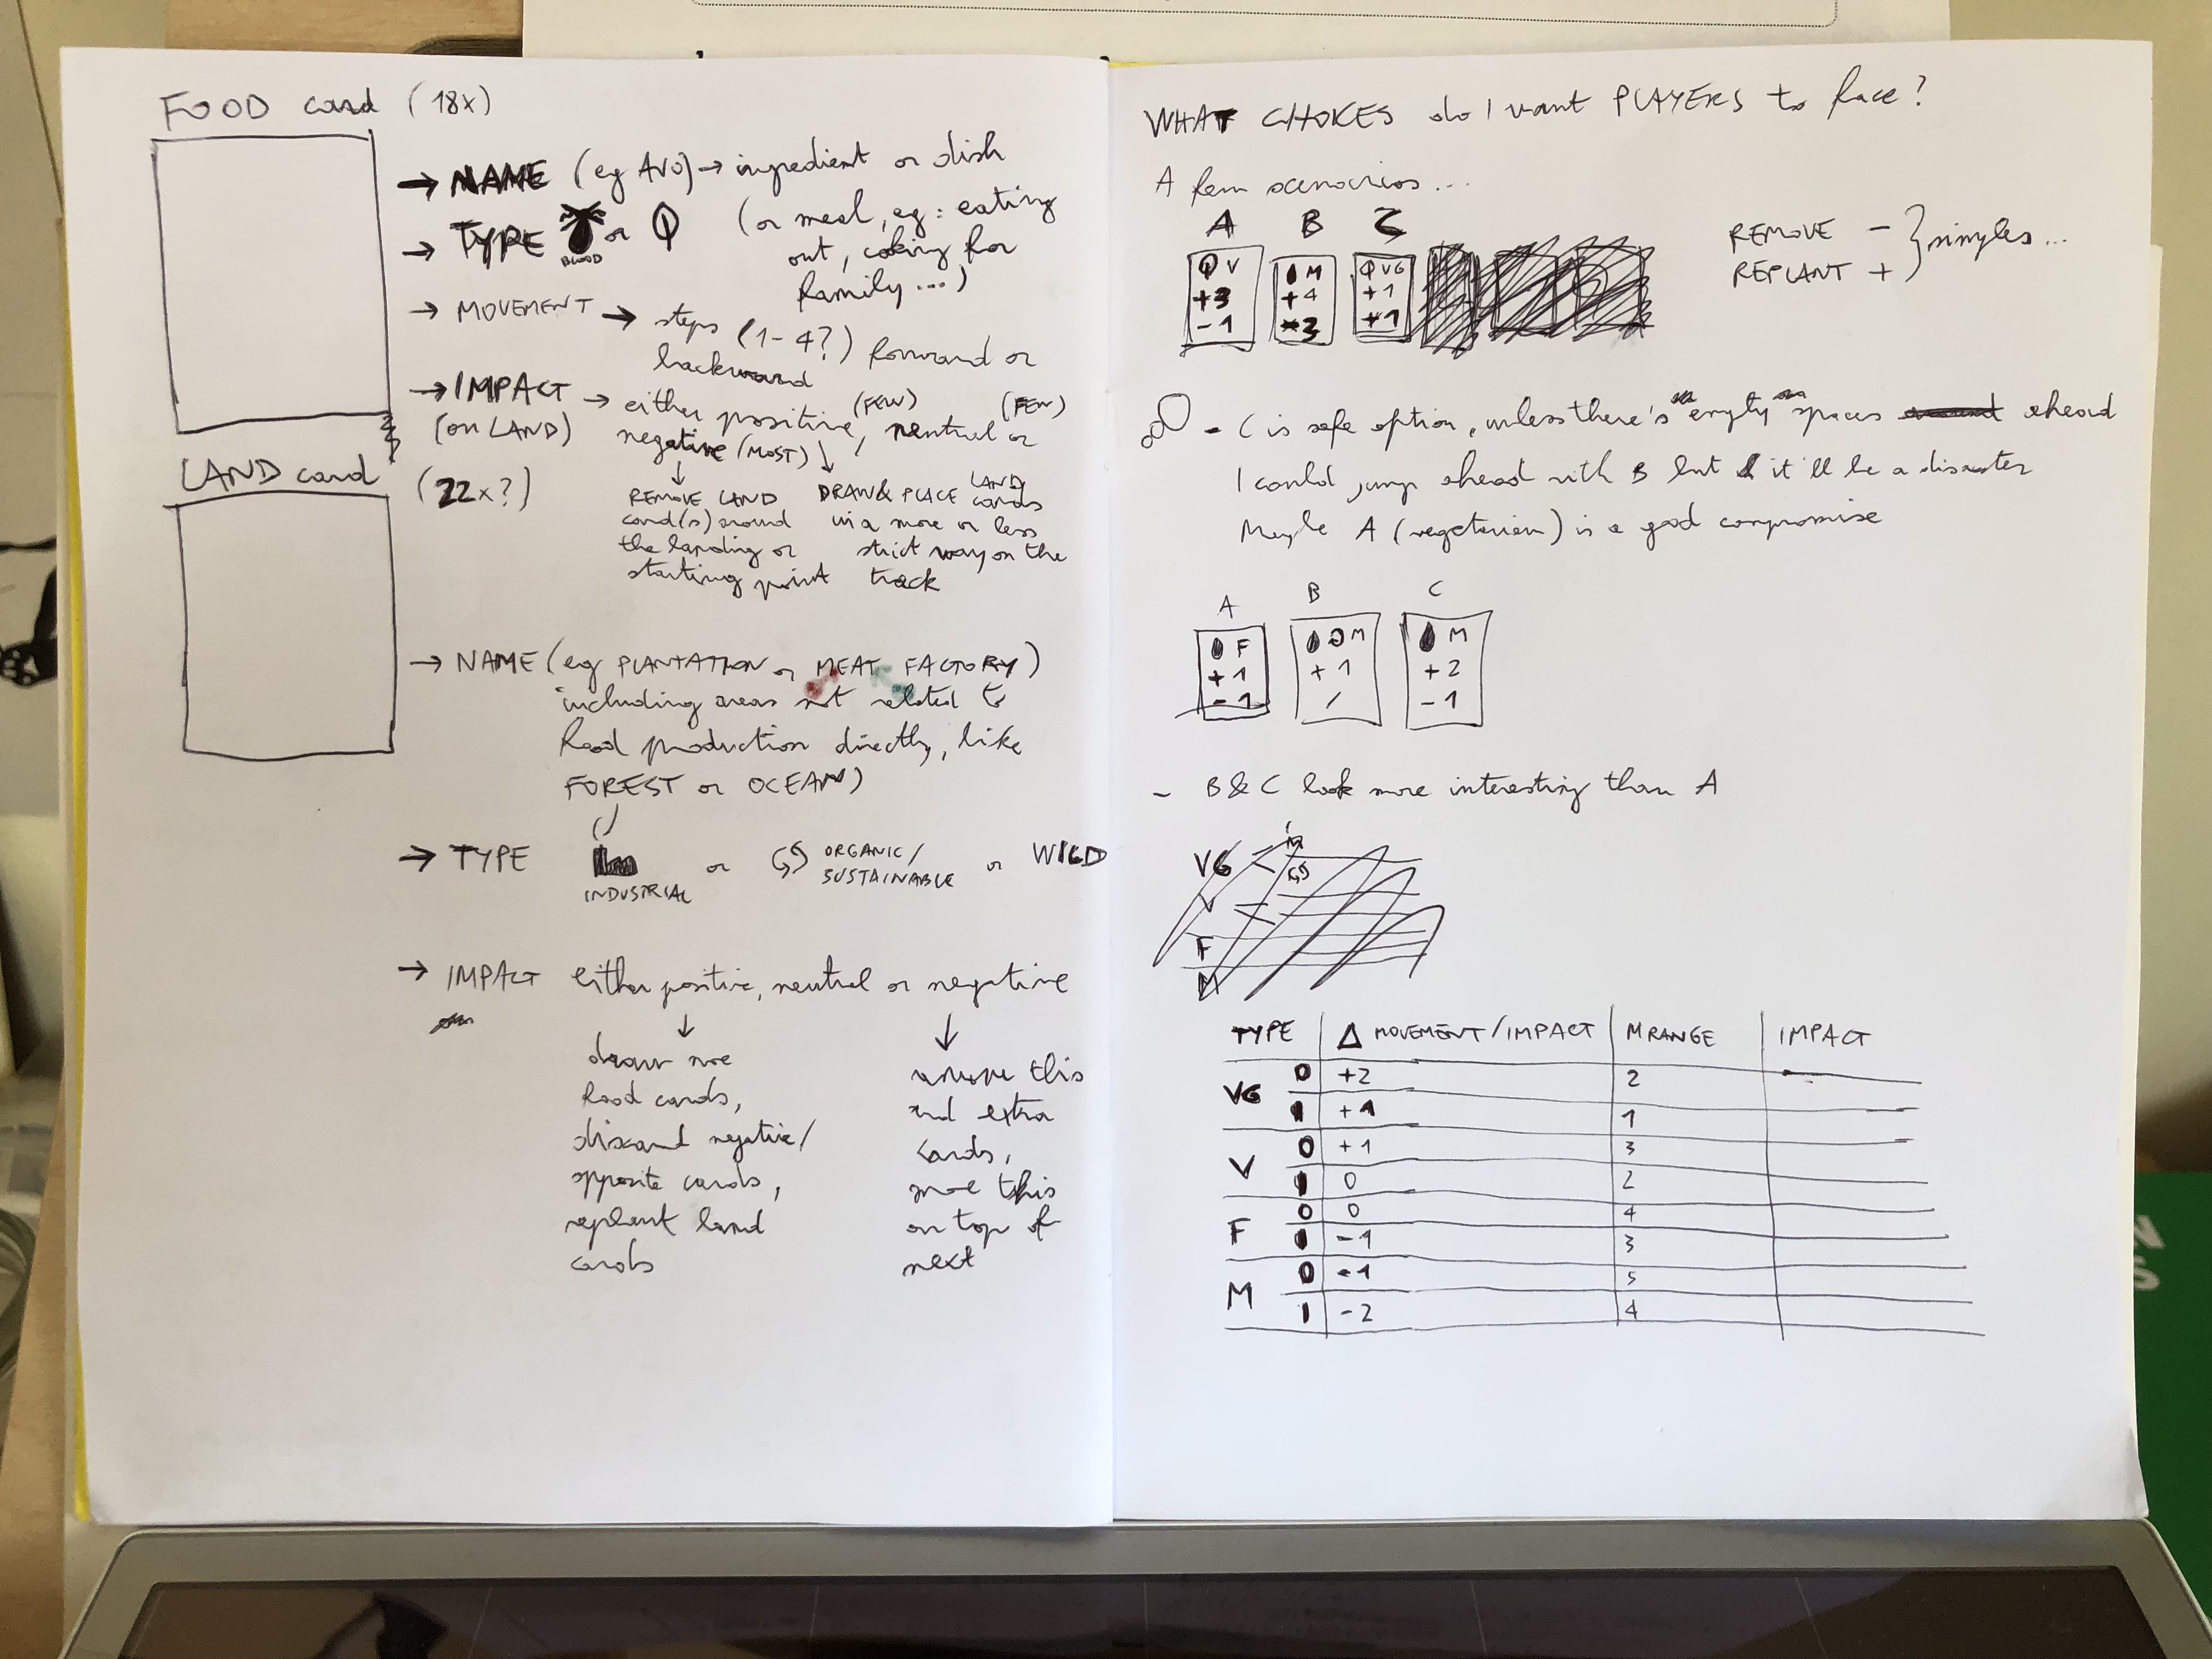 FOOD card (18x)
→ NAME (eg AVO) → ingredient or dish
(or meal, eg: eating
out, cooking for
family ...)
→ TYPE or
BLOOD
→ MOVEMENT → steps (1-4?) forward or
backward
→ IMPACT → either positive (FEW), neutral (FEW) or
(on LAND) negative (MOST)
REMOVE LAND
card(s) around
the landing or
starting point
DRAW & PLACE LAND cards
in a more or less
strict way on the
track
LAND card (22x?)
→ NAME (eg PLANTATION or MEAT FACTORY)
including areas not related to
food production directly, like
FOREST or OCEAN)
→ TYPE or ORGANIC/ or WILD
INDUSTRIAL SUSTAINABLE
→ IMPACT either positive, neutral or negative
draw more
food cards,
discard negative/
opposite cards,
replant land
cards
remove this
and extra
cards,
move this
on top of
next
WHAT CHOICES do I want PLAYERS to face?
A few scenarios...
A B C
V M VG
+3 +4 +1
-1 -3 +1
REMOVE -
REPLANT + } simples...
- C is safe option, unless there's empty spaces ahead
I could jump ahead with B but it'll be a disaster
Maybe A (vegetarian) is a good compromise
A B C
F M M
+1 +1 +2
-1 / -1
- B & C look more interesting than A
VG
V
F
M
TYPE Δ MOVEMENT/IMPACT M RANGE IMPACT
VG 0 +2 2
1 +1 1
V 0 +1 3
1 0 2
F 0 0 4
1 -1 3
M 0 -1 5
1 -2 4